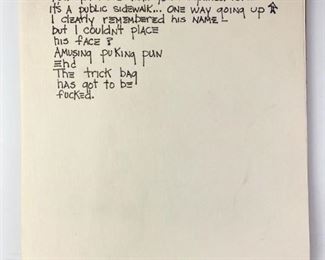 it's a public sidewalk... one way going up
I clearly remembered his name!
but I couldn't place
his face?
Amusing puking pun
End
The trick bag
has got to be
fucked.